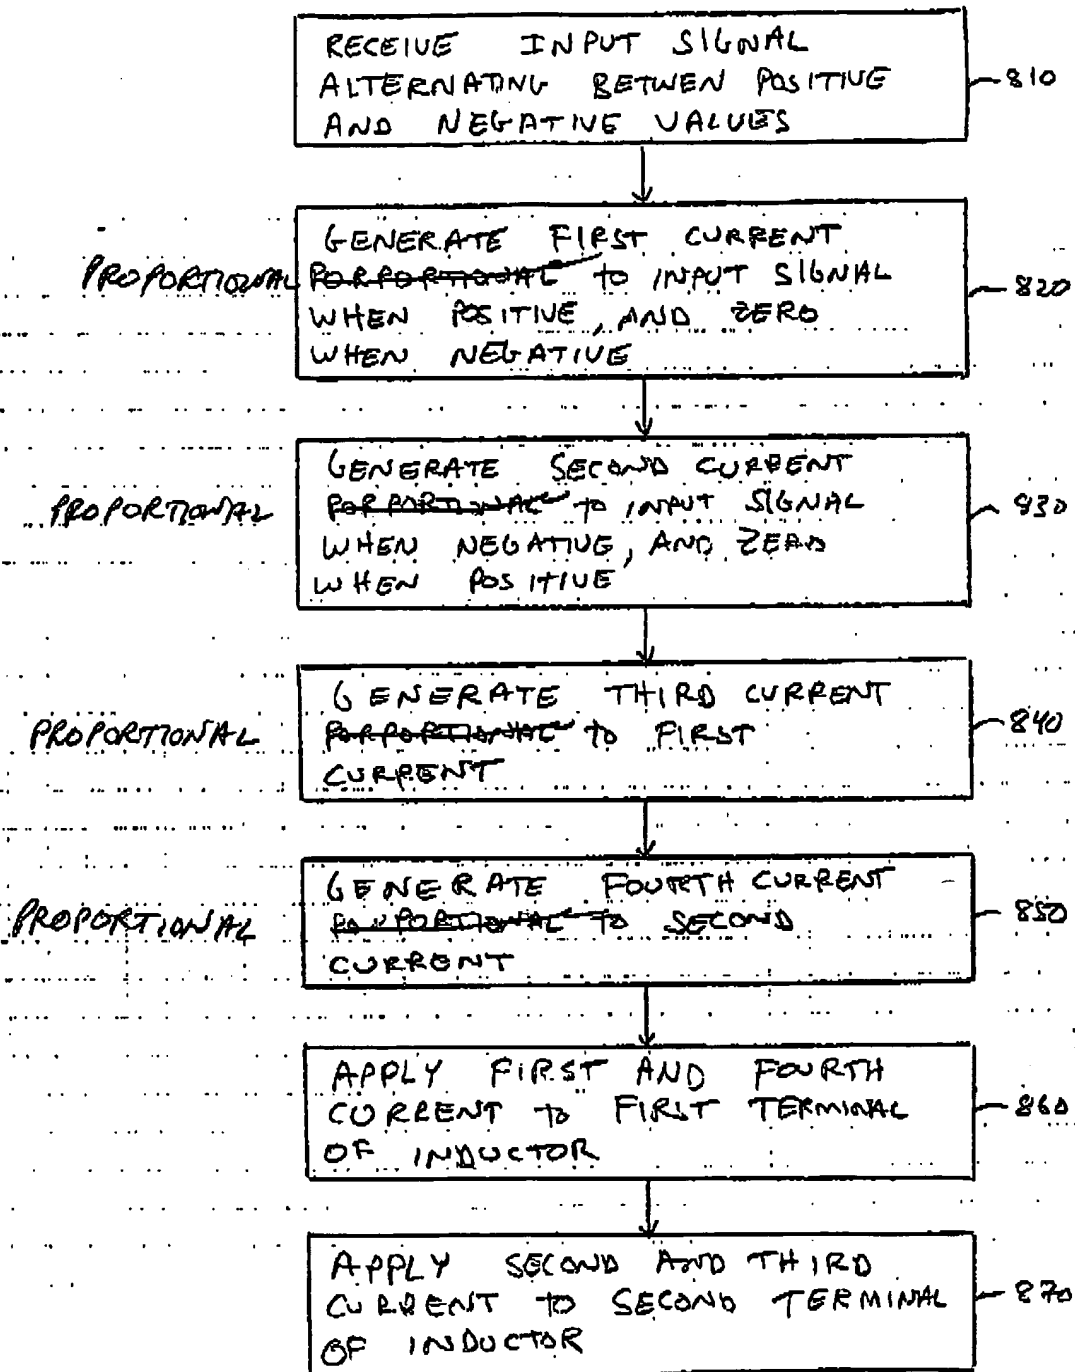 RECEIVE INPUT SIGNAL
ALTERNATING BETWEN POSITIVE
AND NEGATIVE VALUES
810
GENERATE FIRST CURRENT
PROPORTIONAL PORPORTIONAL to INPUT SIGNAL
WHEN POSITIVE, AND ZERO
WHEN NEGATIVE
820
GENERATE SECOND CURRENT
PROPORTIONAL PORPORTIONAL to INPUT SIGNAL
WHEN NEGATIVE, AND ZERO
WHEN POSITIVE
830
GENERATE THIRD CURRENT
PROPORTIONAL PORPORTIONAL to FIRST
CURRENT
840
GENERATE FOURTH CURRENT
PROPORTIONAL PORPORTIONAL TO SECOND
CURRENT
850
APPLY FIRST AND FOURTH
CURRENT to FIRST TERMINAL
OF INDUCTOR
860
APPLY SECOND AND THIRD
CURRENT to SECOND TERMINAL
OF INDUCTOR
870